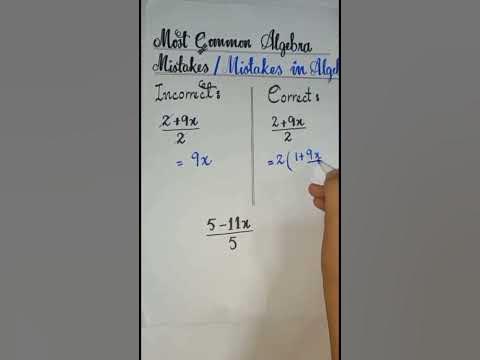 Most Common Algebra
Mistakes / Mistakes in Algeb
Incorrect:
2+9x
2
= 9x
Correct:
2+9x
2
= 2(1+9x
5-11x
5